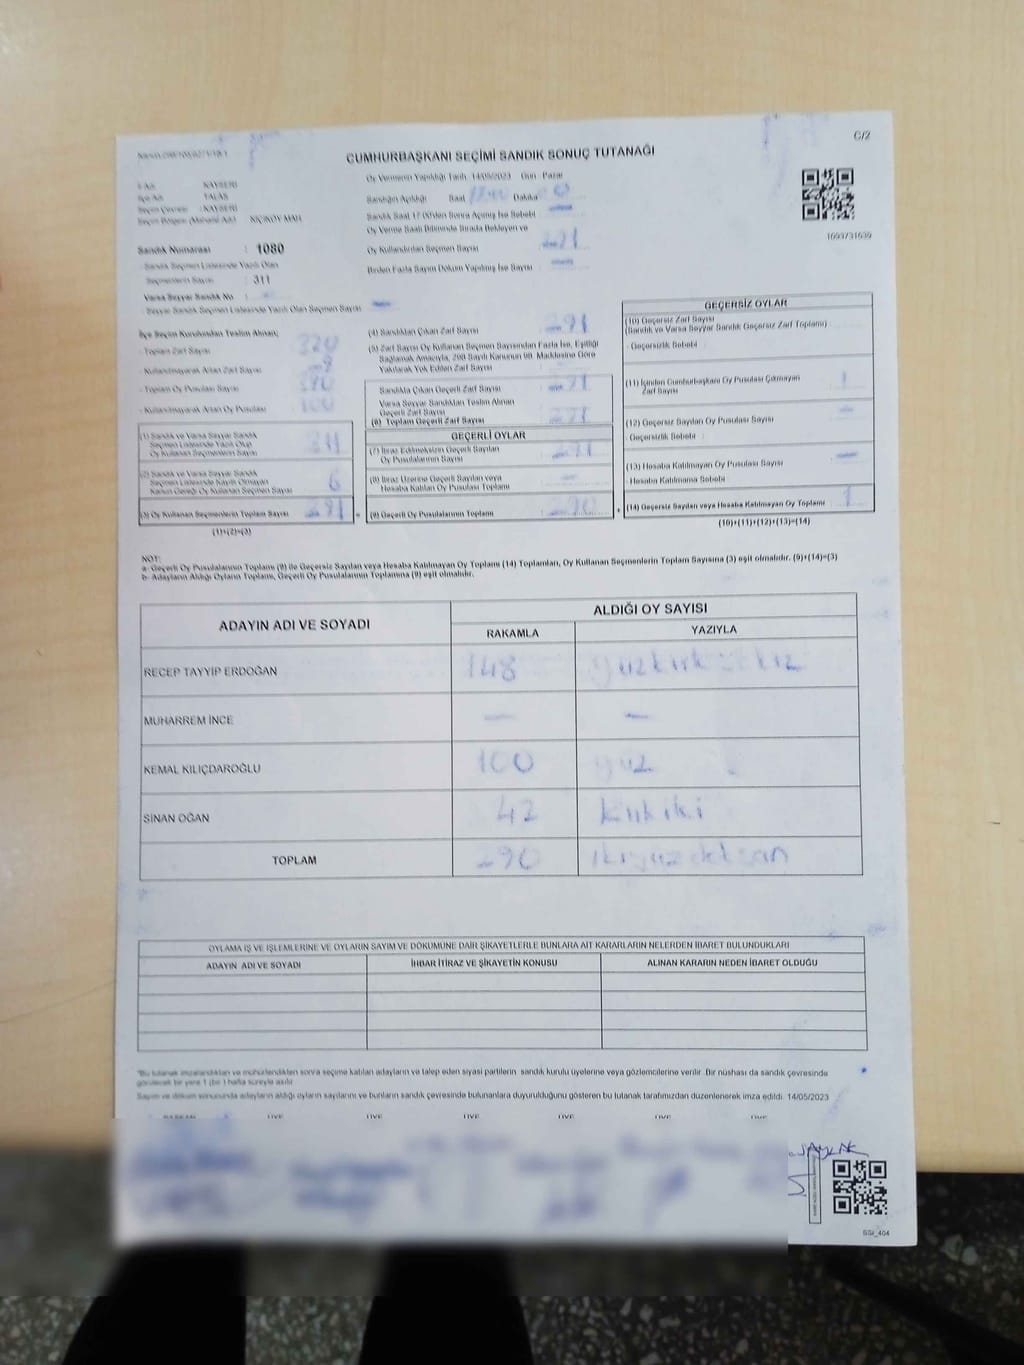 C/2
CUMHURBAŞKANI SEÇİMİ SANDIK SONUÇ TUTANAĞI
İli Adı : KAYSERİ
İlçe Adı : TALAS
Seçim Çevresi : KAYSERİ
Seçim Bölgesi (Muhtarlık Adı) : KİÇİKÖY MAH.
Sandık Numarası : 1080
Sandık Seçmen Listesinde Yazılı Olan
Seçmenlerin Sayısı : 311
Varsa Seyyar Sandık No :
Seyyar Sandık Seçmen Listesinde Yazılı Olan Seçmen Sayısı —
Oy Vermenin Yapıldığı Tarih 14/05/2023 Gün Pazar
Sandığın Açıldığı Saat Dakika
Sandık Saat 17:00'den Sonra Açılmış İse Sebebi
Oy Verme Saati Bitiminde Sırada Bekleyen ve
Oy Kullandırılan Seçmen Sayısı
Birden Fazla Sayım Döküm Yapılmış İse Sayısı
1003731630
İlçe Seçim Kurulundan Teslim Alınan;
Toplam Zarf Sayısı 320
Kullanılmayarak Artan Zarf Sayısı
Toplam Oy Pusulası Sayısı
Kullanılmayarak Artan Oy Pusulası 100
(1) Sandık ve Varsa Seyyar Sandık
Seçmen Listesinde Yazılı Olup
Oy Kullanan Seçmenlerin Sayısı
(2) Sandık ve Varsa Seyyar Sandık
Seçmen Listesinde Kayıtlı Olmayan
Kanun Gereği Oy Kullanan Seçmen Sayısı 6
(3) Oy Kullanan Seçmenlerin Toplam Sayısı 291
(1)+(2)=(3)
(4) Sandıktan Çıkan Zarf Sayısı 291
(5) Zarf Sayısı Oy Kullanan Seçmen Sayısından Fazla İse, Eşitliği
Sağlamak Amacıyla, 298 Sayılı Kanunun 98. Maddesine Göre
Yakılarak Yok Edilen Zarf Sayısı
Sandıkta Çıkan Geçerli Zarf Sayısı
Varsa Seyyar Sandıktan Teslim Alınan
Geçerli Zarf Sayısı
(6) Toplam Geçerli Zarf Sayısı
GEÇERLİ OYLAR
(7) İtiraz Edilmeksizin Geçerli Sayılan
Oy Pusulalarının Sayısı
(8) İtiraz Üzerine Geçerli Sayılan veya
Hesaba Katılan Oy Pusulası Toplamı —
(9) Geçerli Oy Pusulalarının Toplamı 290
GEÇERSİZ OYLAR
(10) Geçersiz Zarf Sayısı
(Sandık ve Varsa Seyyar Sandık Geçersiz Zarf Toplamı)
- Geçersizlik Sebebi :
(11) İçinden Cumhurbaşkanı Oy Pusulası Çıkmayan
Zarf Sayısı 1
(12) Geçersiz Sayılan Oy Pusulası Sayısı —
- Geçersizlik Sebebi :
(13) Hesaba Katılmayan Oy Pusulası Sayısı —
- Hesaba Katılmama Sebebi
(14) Geçersiz Sayılan veya Hesaba Katılmayan Oy Toplamı 1
(10)+(11)+(12)+(13)=(14)
NOT:
a- Geçerli Oy Pusulalarının Toplamı (9) ile Geçersiz Sayılan veya Hesaba Katılmayan Oy Toplamı (14) Toplamları, Oy Kullanan Seçmenlerin Toplam Sayısına (3) eşit olmalıdır. (9)+(14)=(3)
b- Adayların Aldığı Oyların Toplamı, Geçerli Oy Pusulalarının Toplamına (9) eşit olmalıdır.
ADAYIN ADI VE SOYADI ALDIĞI OY SAYISI
RAKAMLA YAZIYLA
RECEP TAYYİP ERDOĞAN 148 yüzkırk sekiz
MUHARREM İNCE — —
KEMAL KILIÇDAROĞLU 100 yüz
SİNAN OĞAN 42 kırk iki
TOPLAM 290 ikiyüzdoksan
OYLAMA İŞ VE İŞLEMLERİNE VE OYLARIN SAYIM VE DÖKÜMÜNE DAİR ŞİKAYETLERLE BUNLARA AİT KARARLARIN NELERDEN İBARET BULUNDUKLARI
ADAYIN ADI VE SOYADI İHBAR İTİRAZ VE ŞİKAYETİN KONUSU ALINAN KARARIN NEDEN İBARET OLDUĞU
*Bu tutanak imzalandıktan ve mühürlendikten sonra seçime katılan adayların ve talep eden siyasi partilerin sandık kurulu üyelerine veya gözlemcilerine verilir. Bir nüshası da sandık çevresinde
görülecek bir yere 1 (bir) hafta süreyle asılır
Sayım ve döküm sonucunda adayların aldığı oyların sayılarını ve bunların sandık çevresinde bulunanlara duyurulduğunu gösteren bu tutanak tarafımızdan düzenlenerek imza edildi. 14/05/2023
BAŞKAN ÜYE ÜYE ÜYE ÜYE ÜYE
SSI_404